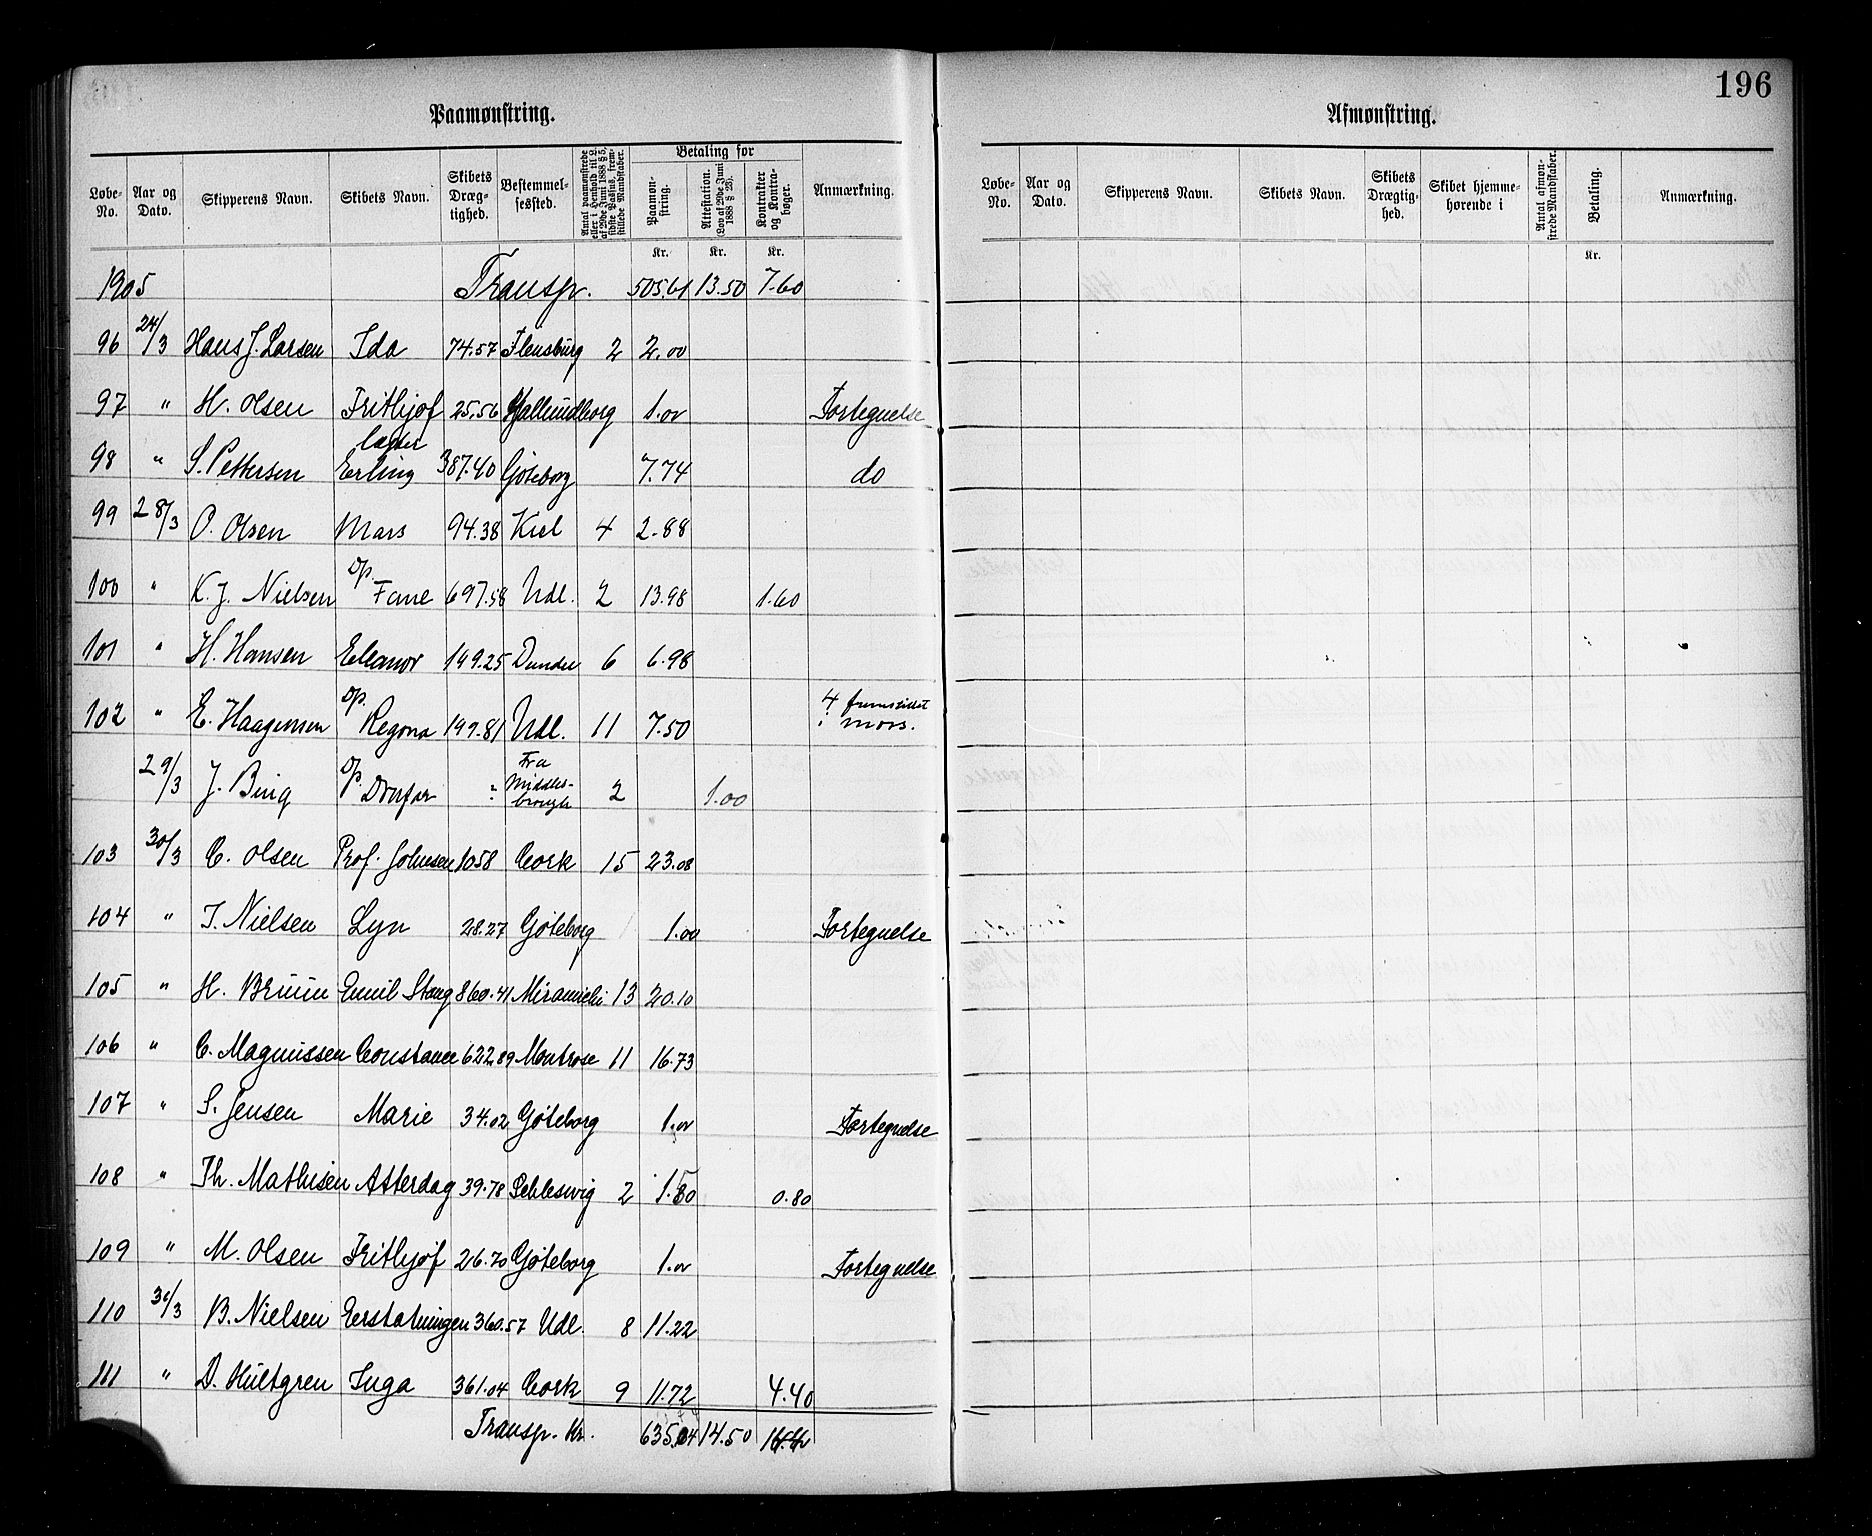 196
Paamønstring.
Løbe-No. | Aar og Dato. | Skipperens Navn. | Skibets Navn. | Skibets Dræg-tighed. | Bestemmel-sessted. | Antal paamønstrede eller i Henhold til L. af 29de Juni 1888 § 5, sidste Passus, frem-stillede Mandskaber. | Betaling for | Paamøn-string. | Attestation. (Lov af 29de Juni 1888 § 23). | Kontrakter og Kontra-bøger. | Anmærkning.
Kr. | Kr. | Kr.
1905 Transp. 505.61 13.50 7.60
96 24/3 Hans J. Larsen Ida 74.57 Flensburg 2 2.00
97 " H. Olsen Frithjof 25.56 Kallundborg 1.00 Fortegnelse
98 " S. Pettersen lægter Erling 387.40 Gøteborg 7.74 do
99 28/3 O. Olsen Mars 94.38 Kiel 4 2.88
100 " K. J. Nielsen Dp. Fane 697.58 Udl. 2 13.98 1.60
101 " H. Hansen Eleanor 149.25 Dundee 6 6.98
102 " E. Haagensen Dp. Regona 199.81 Udl. 11 7.50 4 fremstillet i Moss.
29/3 J. Bing Dp. 2 Fra Middles-brough 1.00
103 30/3 C. Olsen Prof. Johnsen 1058 Cork 15 23.08
104 " J. Nielsen Lyn 28.27 Gøteborg 1.00 Fortegnelse
105 " H. Bruun Emil Stang 860.41 Miramichi 13 20.10
106 " C. Magnussen Constance 622.89 Montrose 11 16.73
107 " S. Jensen Marie 34.02 Gøteborg 1.00 Fortegnelse
108 " Th. Mathisen Atterdag 39.78 Schleswig 2 1.80 0.80
109 " M. Olsen Frithjof 26.70 Gøteborg 1.00 Fortegnelse
110 31/3 B. Nielsen Erstatningen 360.57 Udl. 8 11.22
111 " D. Hultgren Inga 361.04 Cork 9 11.72 4.40
Transp. Kr. 635.04 14.50
Afmønstring.
Løbe-No. | Aar og Dato. | Skipperens Navn. | Skibets Navn. | Skibets Drægtig-hed. | Skibet hjemme-hørende i | Antal afmøn-strede Mandskaber. | Betaling. | Anmærkning.
Kr.